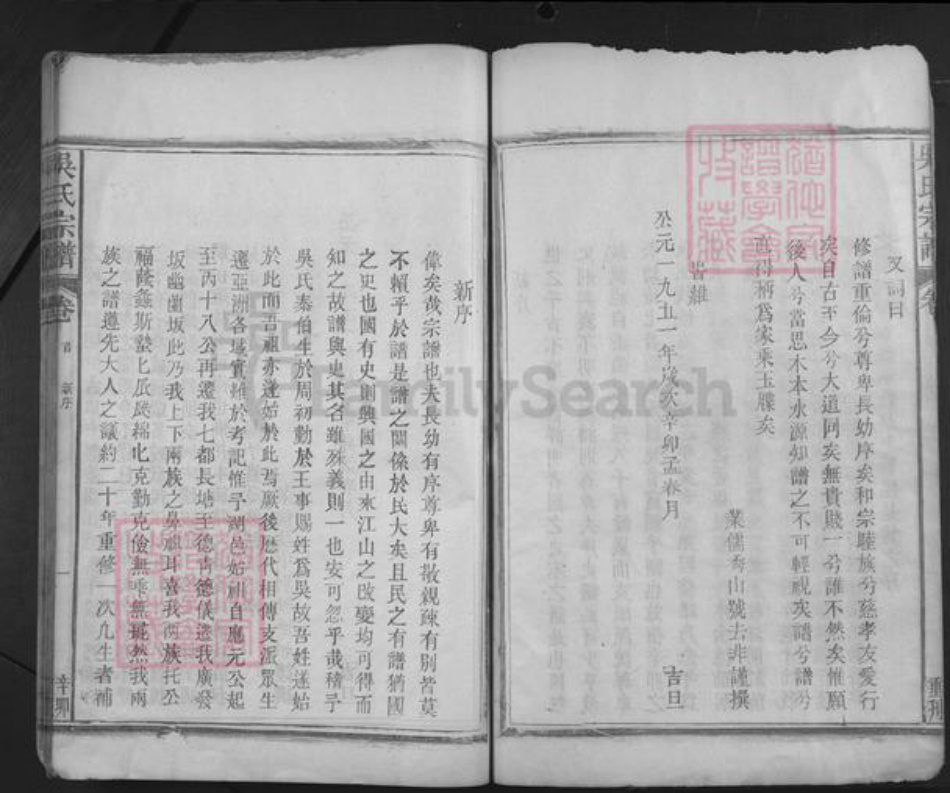 又詞曰
修譜重倫兮尊卑長幼序矣和宗睦族兮慈孝友愛行
矣自古至今兮大道同矣無貴賤一兮誰不然矣惟願
後人兮當思木本水源知譜之不可輕視矣譜兮譜兮
直得柄為家乘玉牒矣
業儒秀山號去非謹撰
皆維
公元一九五一年歲次辛卯孟春月
吉旦
新序
偉矣哉宗譜也夫長幼有序尊卑有敬親疎有別皆莫
不賴乎於譜是譜之關係於民大矣且民之有譜猶國
之史也國有史則興國之由來江山之改變均可得而
知之故譜與史其名雖殊義則一也安可忽乎哉積予
吳氏泰伯生於周初勤於王事賜姓為吳故吾姓遂始
於此而吾祖亦遂始於此焉厥後歷代相傳支派眾生
遷亞洲各域實難於考記惟予湖邑始祖自應元公起
至丙十八公再遷我七都長塘至德青德儀遷我廣發
坂幽幽坂此乃我上下兩族之鼻祖耳喜我兩族托公
福蔭螽斯蟄蟄瓜瓞綿綿克勤克儉無乖無斁然我兩
族之譜遵先大人之議約二十年重修一次凡生者補
吳氏宗譜 卷一 首 新序 一 辛卯
吳氏宗譜 卷 重刊
FamilySearch